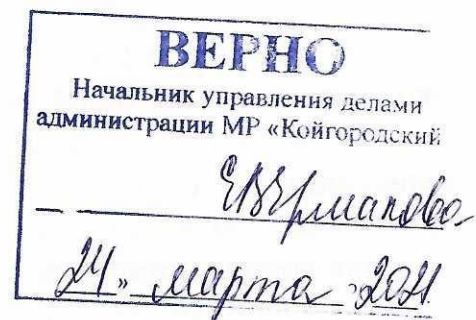 ВЕРНО
Начальник управления делами
администрации МР «Койгородский
Е.В. Ермакова
24 » марта 2021